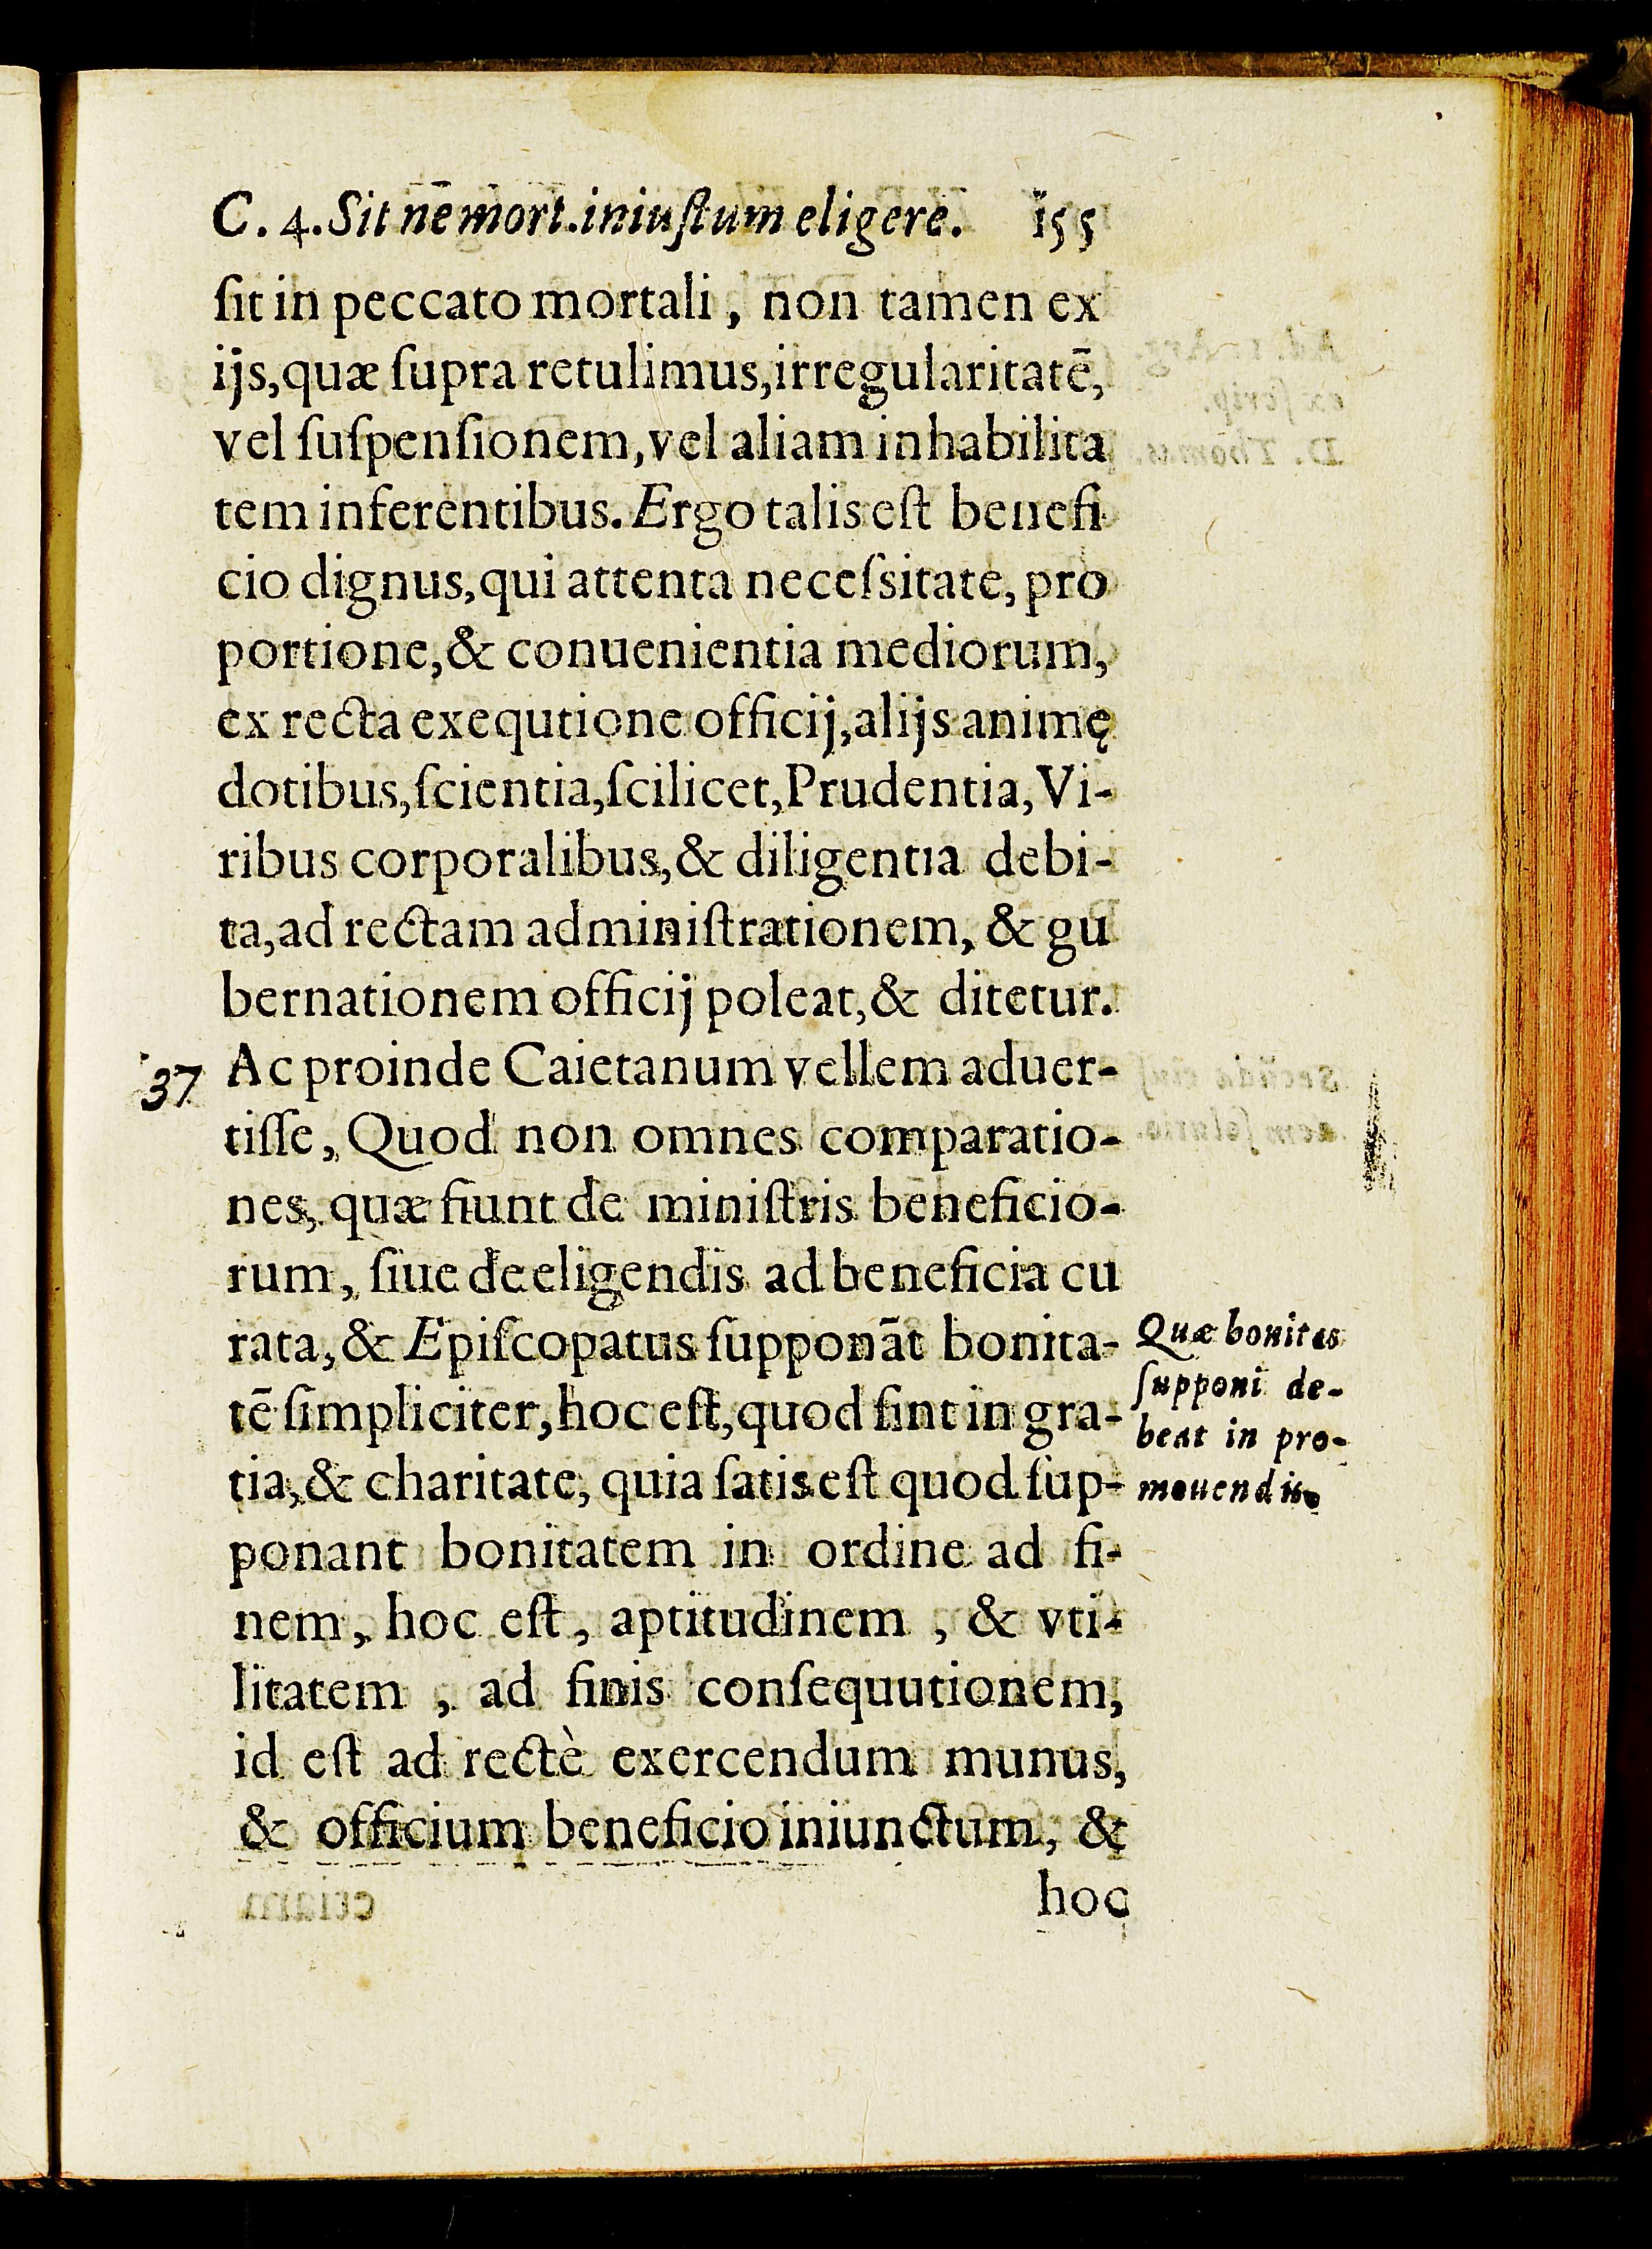 C. 4. Sit nē mort. iniuſtum eligere. 155
ſit in peccato mortali, non tamen ex
ijs, quæ ſupra retulimus, irregularitatē,
vel ſuſpenſionem, vel aliam inhabilita
tem inferentibus. Ergo talis eſt benefi
cio dignus, qui attenta neceſsitate, pro
portione, & conuenientia mediorum,
ex recta exequtione officij, alijs animę
dotibus, ſcientia, ſcilicet, Prudentia, Vi-
ribus corporalibus, & diligentia debi-
ta, ad rectam adminiſtrationem, & gu
bernationem officij poleat, & ditetur.
37 Ac proinde Caietanum vellem aduer-
tiſſe, Quod non omnes comparatio-
nes, quæ fiunt de miniſtris beneficio-
rum, ſiue de eligendis ad beneficia cu
rata, & Epiſcopatus ſupponāt bonita-
tē ſimpliciter, hoc eſt, quod ſint in gra-
tia, & charitate, quia ſatis eſt quod ſup-
ponant bonitatem in ordine ad fi-
nem, hoc eſt, aptitudinem, & vti-
litatem, ad finis conſequutionem,
id eſt ad rectè exercendum munus,
& officium beneficio iniunctum, &
hoc
Quæ bonitas
ſupponi de-
beat in pro-
mouendis.